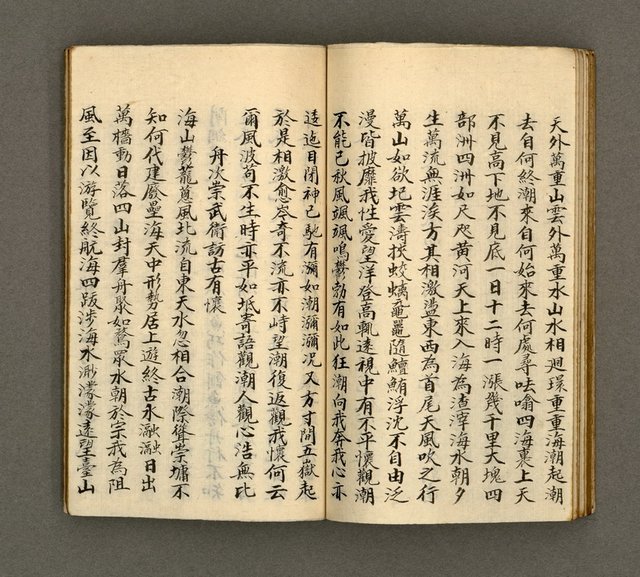 天外萬重山雲外萬重水山水相迴環重重海潮起潮
去自何終潮來自何始來去何處尋呿噏四海裏上天
不見高下地不見底一日十二時一漲幾千里大塊四
部洲四洲如尺咫黃河天上來入海為渣滓海水朝夕
生萬流無涯涘方其相激盪東西為首尾天風吹之行
萬山如欲圮雲濤挾蛟螭黿鼉隨鱣鮪浮沈不自由泛
漫皆披靡我性愛望洋登高輒遠視中有不平懷觀潮
不能已秋風颯颯鳴鬱勃有如此狂潮向我奔我心亦
逶迤目閉神已馳有瀰如潮瀰瀰況又方寸間五嶽起
於是相激愈崒奇不流亦不峙望潮復返觀我懷何云
爾風波苟不生時亦平如坻寄語觀潮人觀心浩無比
舟次崇武衛訪古有懷
海山鬱蘢蔥風北流自東天水忽相合潮際聳崇墉不
知何代建廢壘海天中形勢居上游終古永瀜瀜日出
萬檣動日落四山封羣舟聚如鶩眾水朝於宗我為阻
風至因以游覽終航海四跋涉海水渺濛濛遠望臺山